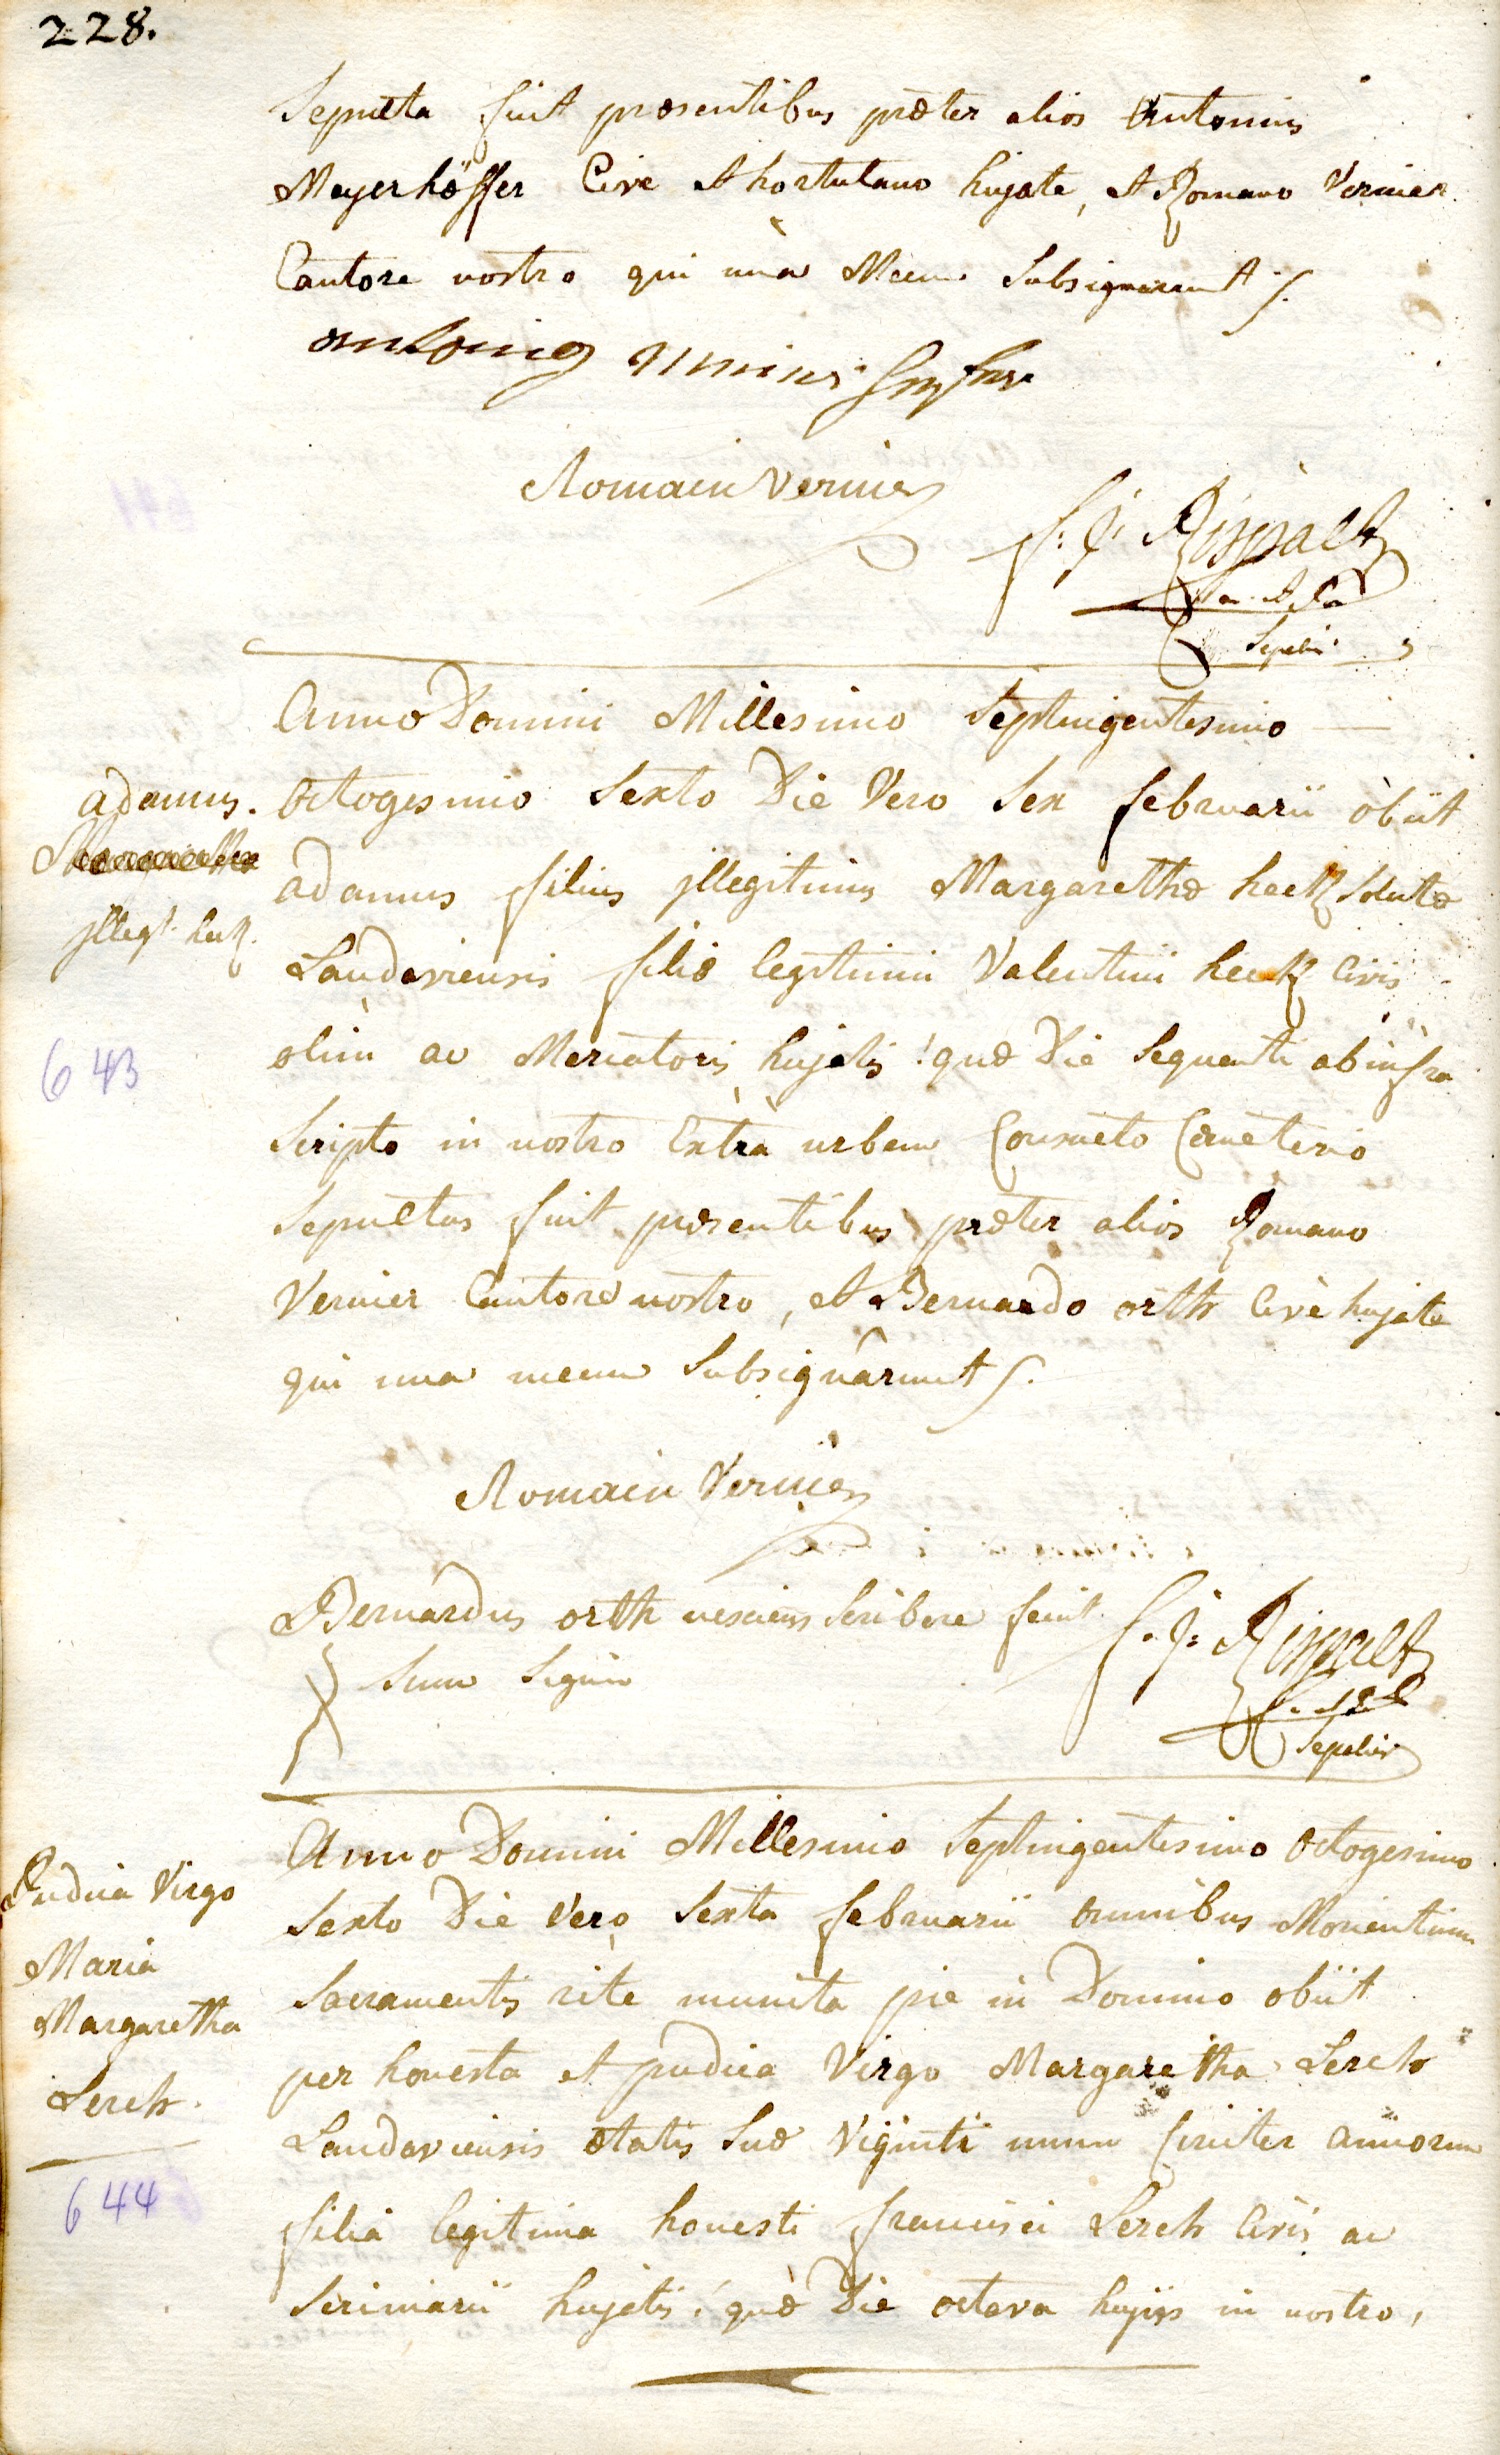 228.
Sepulta fuit præsentibus præter alios Antonius
Meyerhöffer Cive et hortulano hujate, et Romano Vernier
Cantore nostro qui una Mecum Subsignarunt S.
Romain Vernier
S: J: Rispalt
Sepelivi
Anno Domini Millesimo Septingentesimo
adamus.
octogesimo Sexto Die Vero Sex februarii òbiit
illegt. heck.
adamus filius jllegitimus Margarethæ heck Solutæ
Landaviensis filiæ legitimi Valentini heck Civis
643
olim ac Mercatoris hujatis! quæ Die Sequenti ab infra
Scripto in nostro Extrà urbem Consueto Cæmeterio
Sepultus fuit præsentibus præter alios Romano
Vernier Cantore nostro, et Bernardo orth Civè hujate
qui una mecum Subsignârunt S.
Romain Vernier
Bernardus orth nesciens Scribere fecit
Suum Signum
S. J: Rispalt
Sepelivi
Anno Domini Millesimo Septingentesimo Octogesimo
Pudica Virgo
Sexto Die Vero Sexta februarii omnibus Morientium
Maria
Sacramentis rite munita pie in Domino obiit
Margaretha
per honesta et pudica Virgo Margaretha Lerch
Lerch.
Landaviensis ætatis Suæ Viginti unum Circiter annorum
644
filia legitima honesti francisci Lerch Civis ac
Scriniarii hujatis! quæ Die octava hujus in nostro,